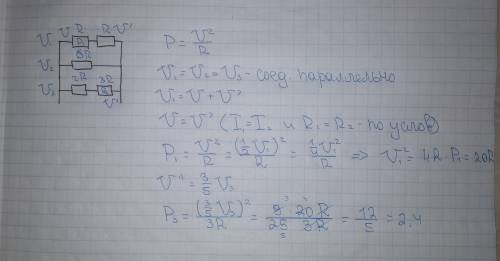 V₁ V R R V'
P₁
V₂ 3R
V₃ 2R 3R
V''
P = V²/R
V₁ = V₂ = V₃ - соед. параллельно
V₁ = V + V'
V = V' (I₁ = I₂ и R₁ = R₂ - по услов)
V₁² = 4R · P₁ = 20R
V'' = 3/5 V₃
P₃ = (3/5 V₃)²/3R = 9/25 20R/3R = 12/5 = 2,4